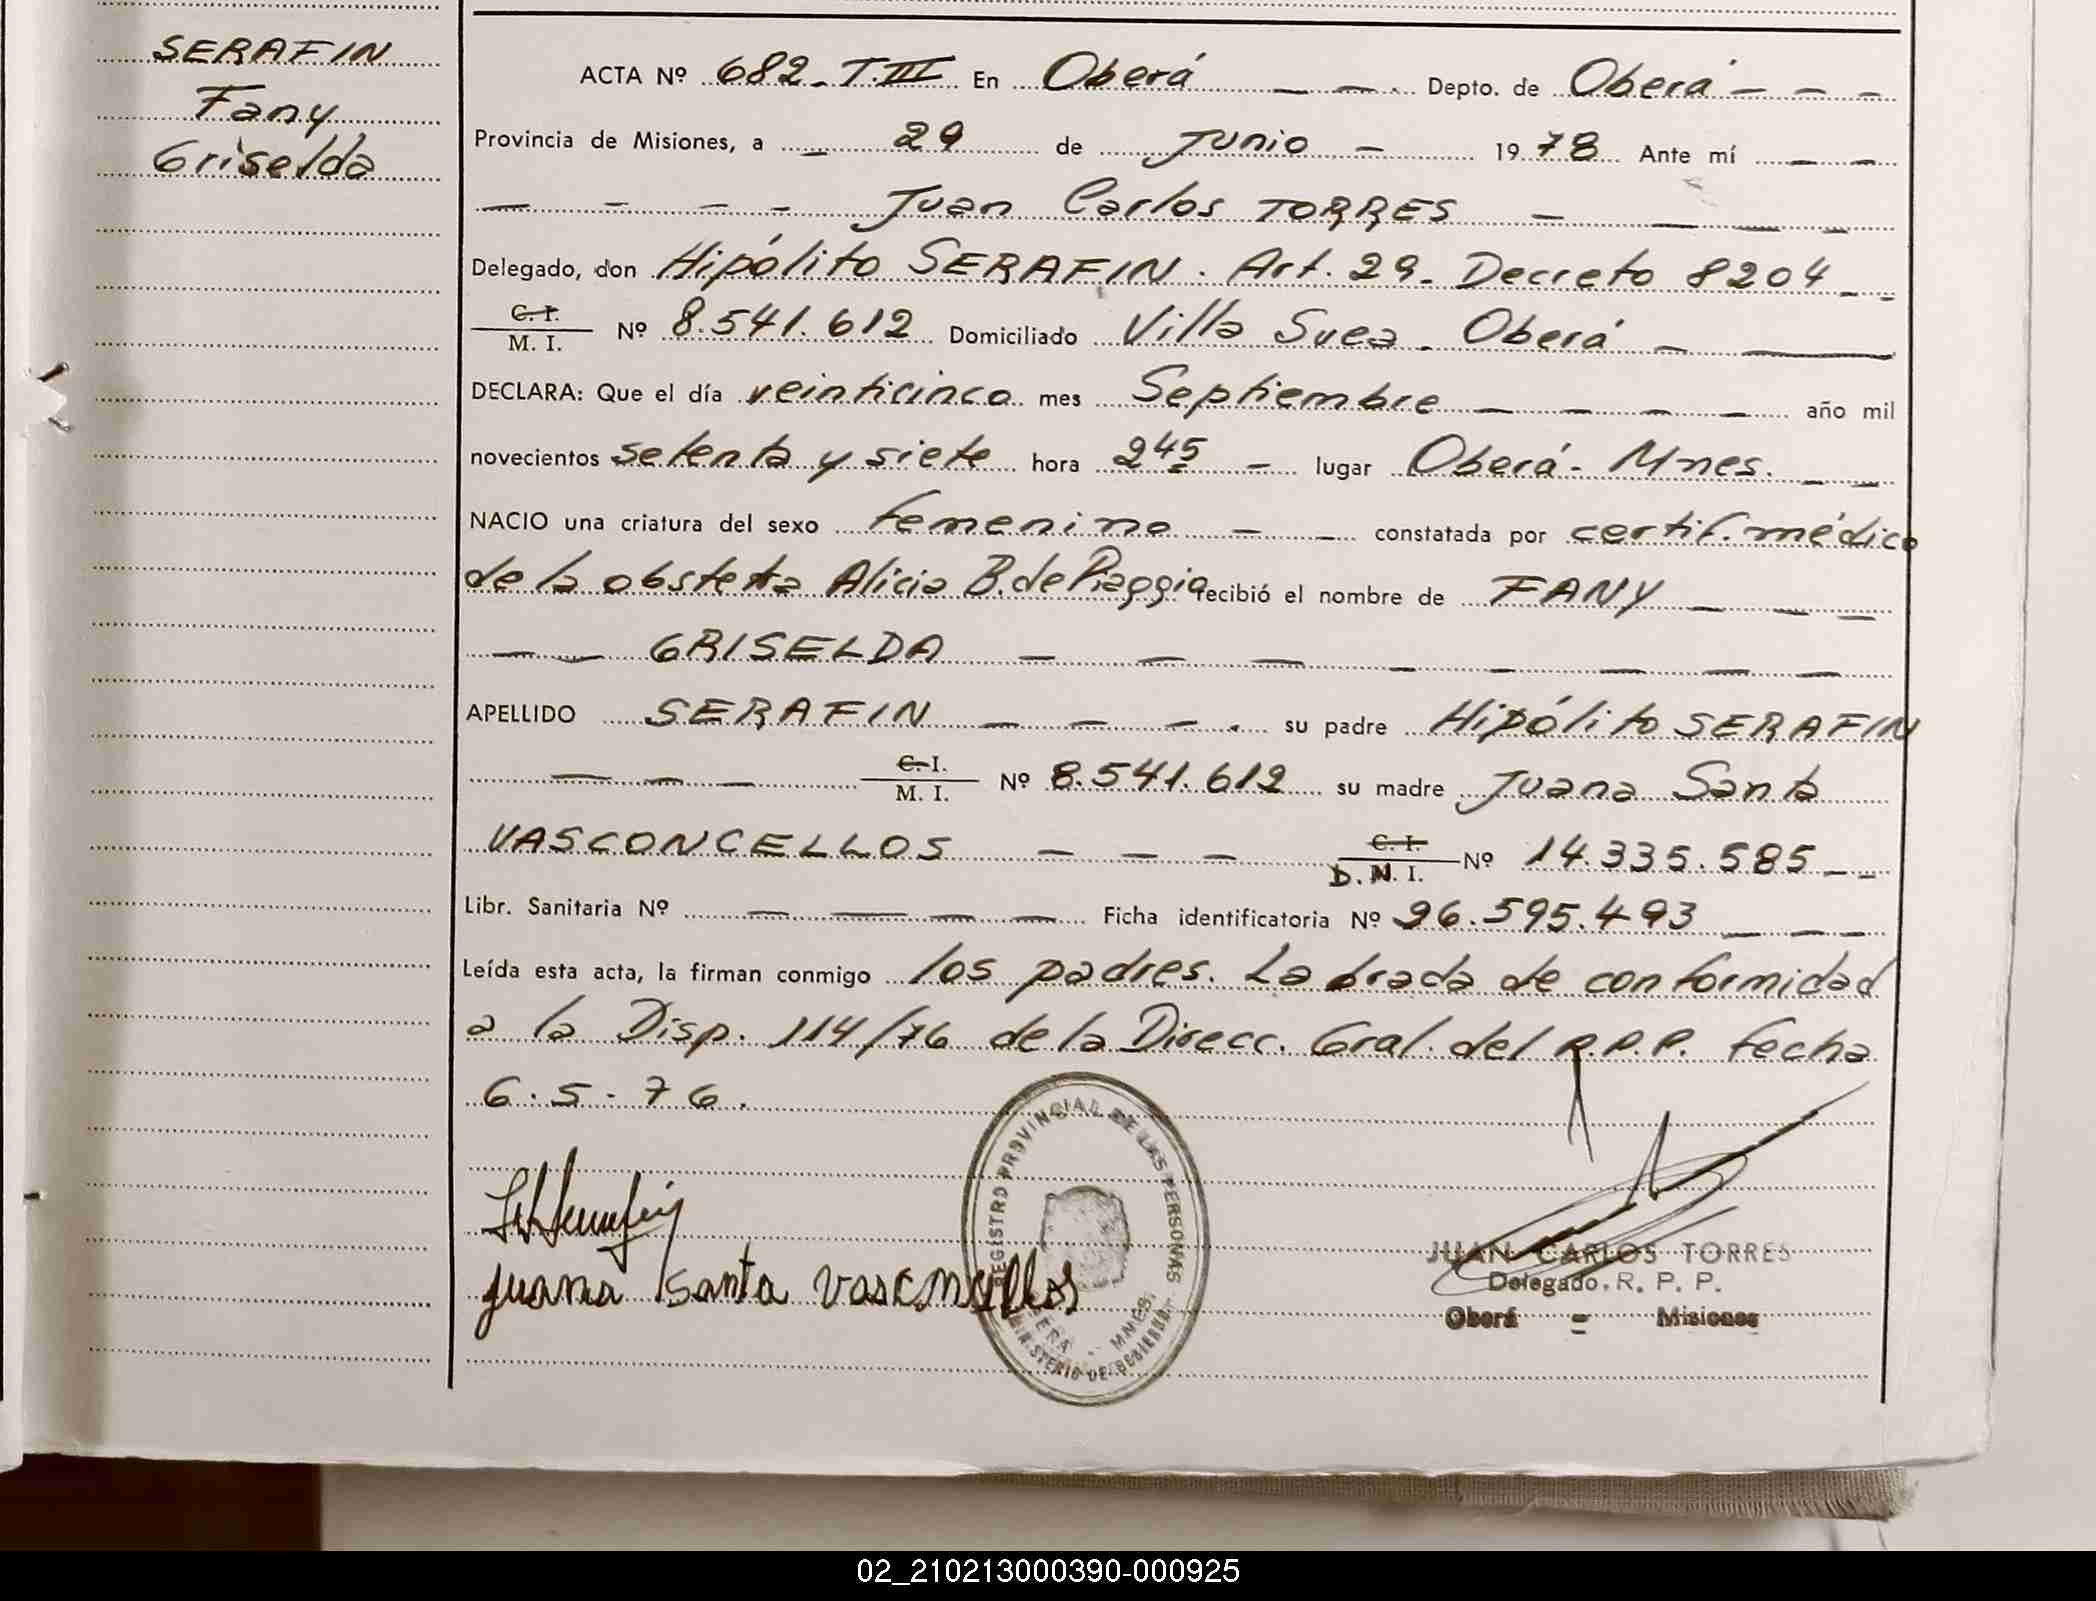 SERAFIN
Fany
Griselda
ACTA Nº 682_ T.III En Oberá — — Depto. de Oberá — — —
Provincia de Misiones, a — 29 de Junio — 1978 Ante mí — —
— — — — Juan Carlos TORRES — — — —
Delegado, don Hipólito SERAFIN. Art. 29_ Decreto 8204 _ _
C. I.
M. I. Nº 8.541.612 Domiciliado Villa Suea _ Oberá — ——
DECLARA: Que el día veinticinco mes Septiembre — — — — año mil
novecientos setenta y siete hora 2 45 — lugar Oberá - Mnes. — —
NACIO una criatura del sexo femenino — — constatada por certif. médico
de la obstetra Alicia B. de Piaggio recibió el nombre de FANY — — —
— — GRISELDA — — — — — — — —
APELLIDO SERAFIN — — — . su padre Hipólito SERAFIN
— — — C. I.
M. I. Nº 8.541.612 su madre Juana Santa
VASCONCELLOS — — — C. I.
D. N. I. Nº 14.335.585 _ _
Libr. Sanitaria Nº — — — — Ficha identificatoria Nº 26.595.493 — — —
Leída esta acta, la firman conmigo los padres. Labrada de conformidad
a la Disp. 114/76 de la Direcc. Gral. del R.P.P. fecha
6.5-76.
REGISTRO PROVINCIAL DE LAS PERSONAS
MNES.
MINISTERIO DE GOBIERNO
Juana Santa Vasconcellos
JUAN CARLOS TORRES
Delegado. R. P. P.
Oberá - Misiones
02_210213000390-000925